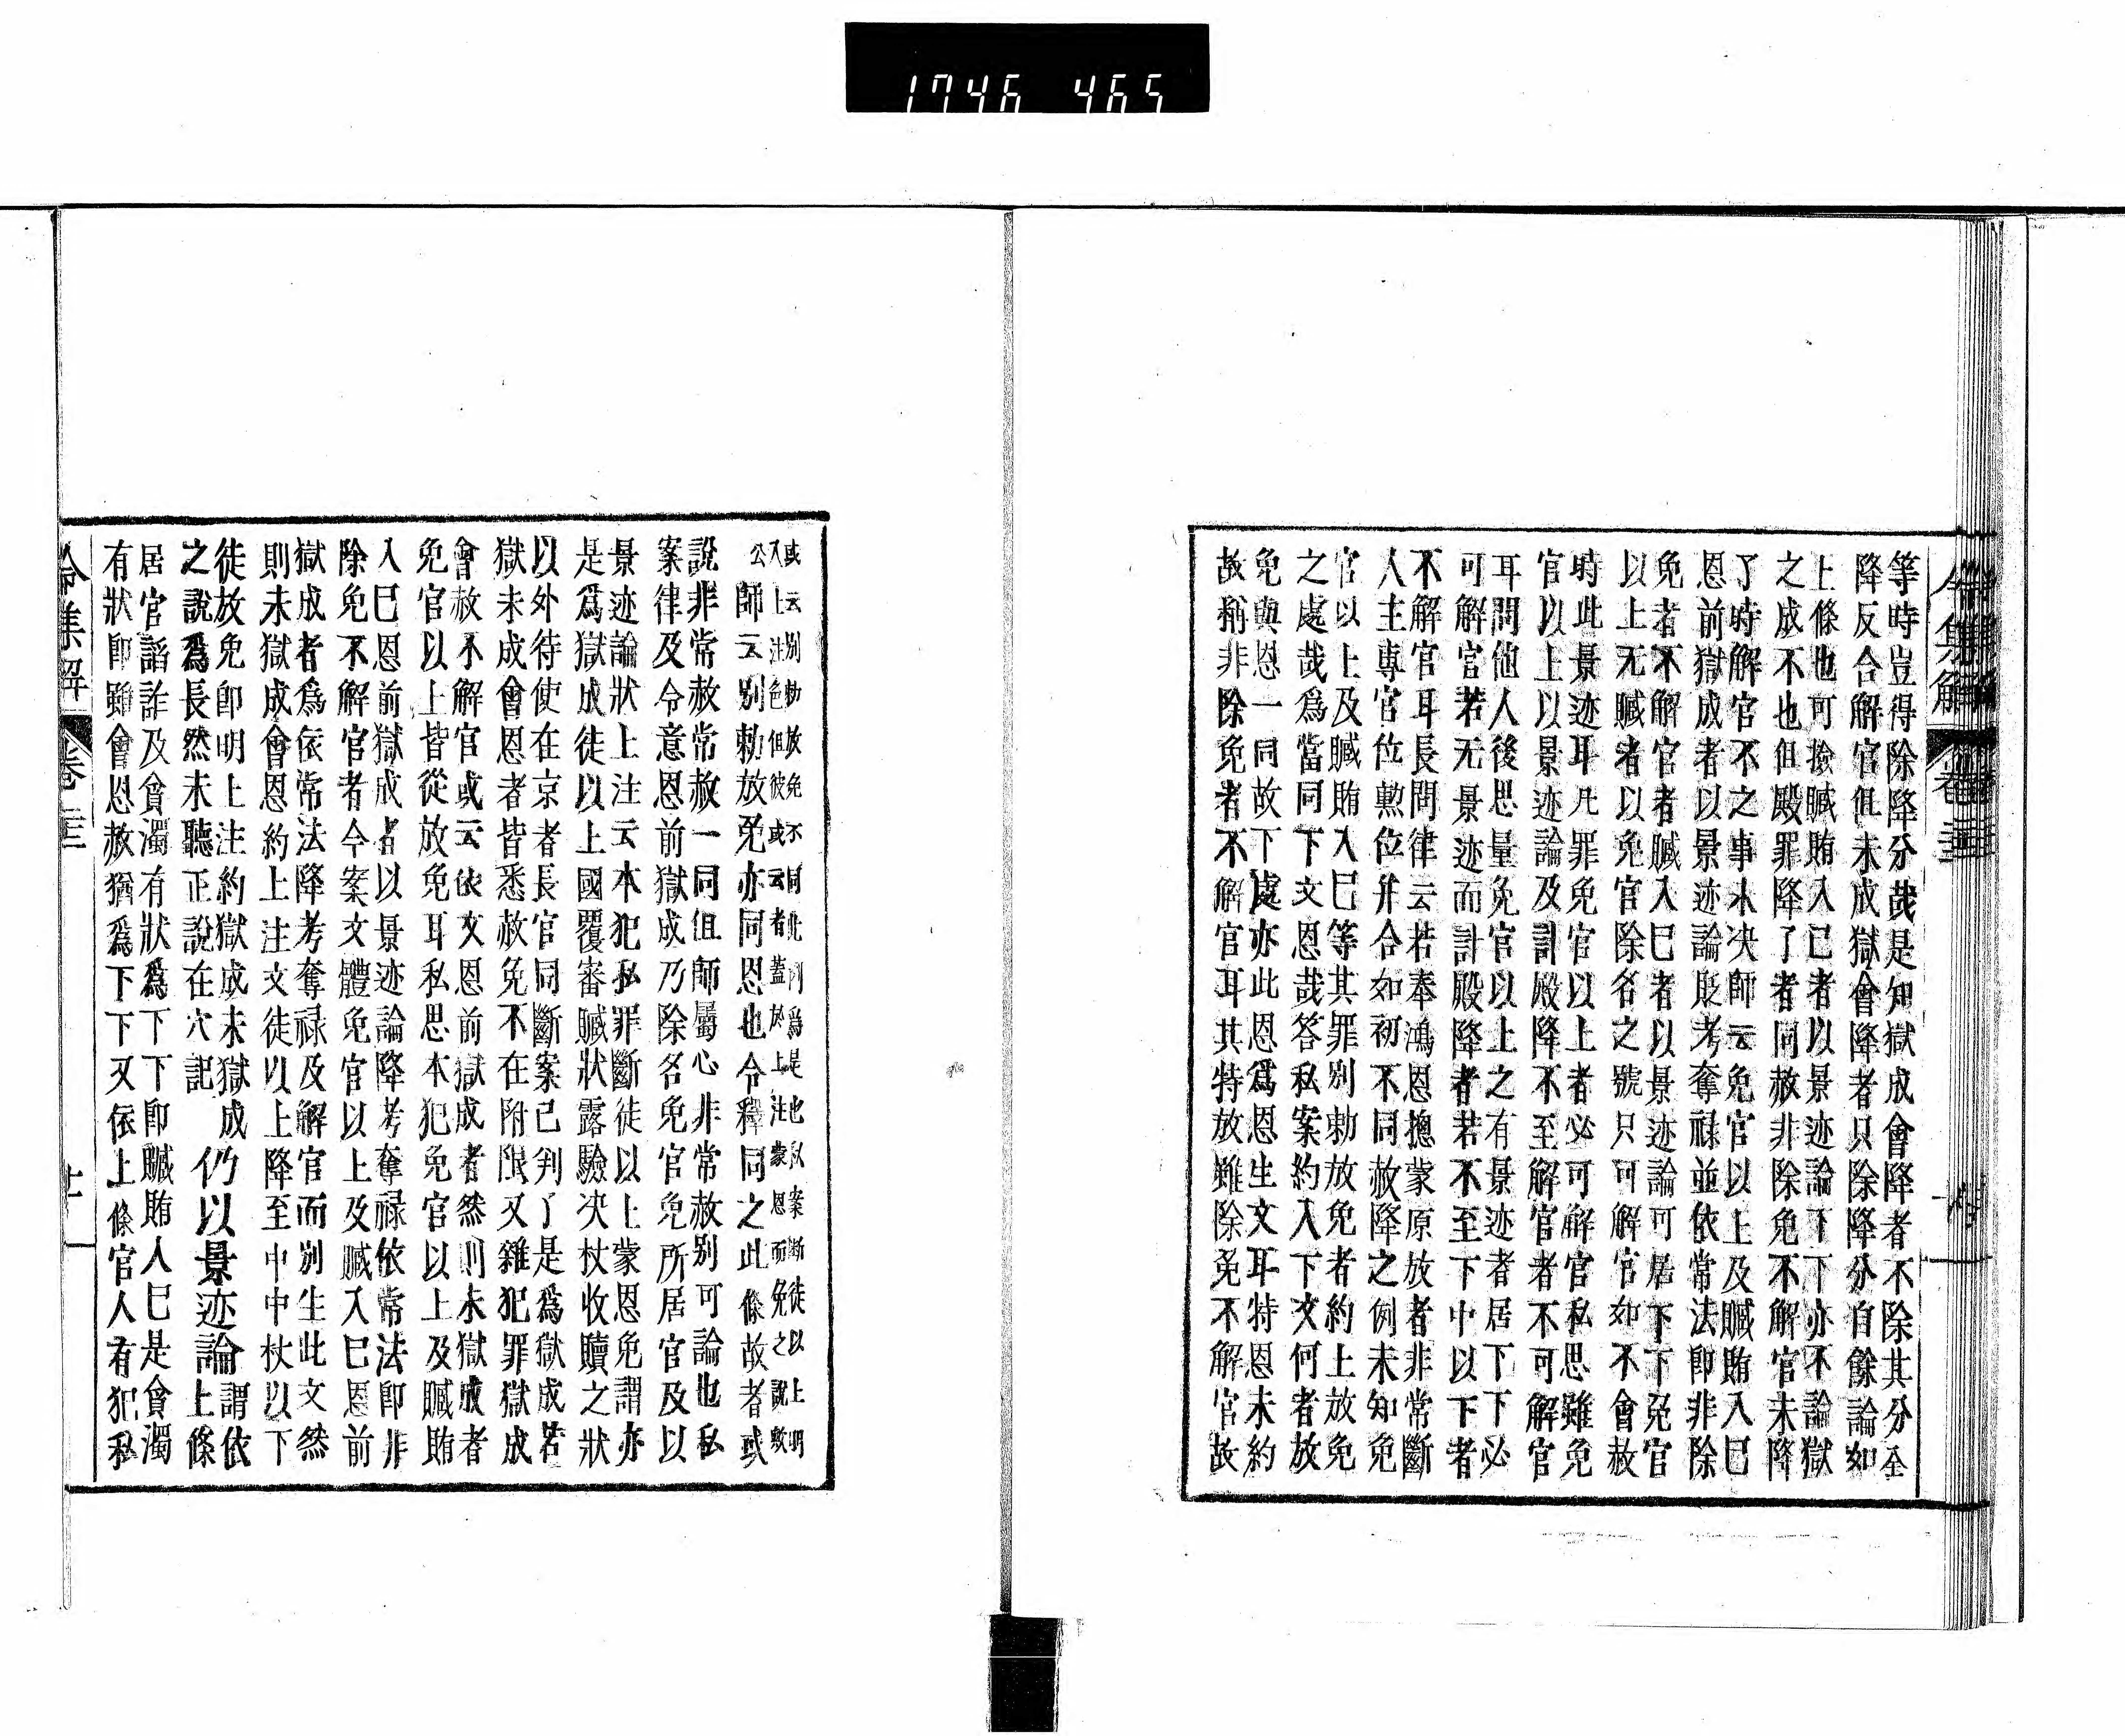 1746 465
令集解 卷二十三
等時豈得除降分哉是知獄成會降者不除其分全
降反合解官但未成獄會降者只除降分自餘論如
上條也可撿贓賄入已者以景迹論下下亦不論獄
之成不也但殿罪降了者同赦非除免不解官未降
了時解官不之事未决師云免官以上及贓賄入巳
恩前獄成者以景迹論貶考奪祿並依常法即非除
免者不解官者贓入巳者以景迹論可居下下免官
以上无贓者以免官除名之號只可解官如不會赦
時此景迹耳凡罪免官以上者必可解官私思雖免
官以上以景迹論及計殿降不至解官者不可解官
耳問他人後思量免官以上之有景迹者居下下必
可解官若无景迹而計殿降者若不至下中以下者
不解官耳長問律云若奉鴻恩摠蒙原放者非常斷
人主專官位勲位并合如初不同赦降之例未知免
官以上及贓賄入巳等其罪別勅放免者約上放免
之處哉爲當同下文恩哉答私案約入下文何者放
免與恩一同故下處亦此恩爲恩生文耳特恩未約
故稱非除免者不解官耳其特放雖除免不解官故
或云別勅放免不同此間爲是也私案斷徒以上明
入上注色但彼或云者蓋於上注蒙恩而免之說歟
公師云別勅放免亦同恩也令釋同之此條故者或
說非常赦常赦一同但師屬心非常赦別可論也私
案律及令意恩前獄成乃除名免官免所居官及以
景迹論狀上注云本犯私罪斷徒以上蒙恩免謂亦
是爲獄成徒以上國覆審贓狀露驗决杖收贖之狀
以外待使在京者長官同斷案已判了是爲獄成若
獄未成會恩者皆悉赦免不在附限又雜犯罪獄成
會赦不解官或云依文恩前獄成者然則未獄成者
免官以上皆從放免耳私思本犯免官以上及贓賄
入巳恩前獄成者以景迹論降考奪祿依常法即非
除免不解官者今案文體免官以上及贓入巳恩前
獄成者爲依常法降考奪祿及解官而別生此文然
則未獄成會恩約上注文徒以上降至中中杖以下
徒放免即明上注約獄成未獄成仍以景迹論謂依
之說爲長然未聽正說在穴記　上條
居官謟詐及貪濁有狀爲下下即贓賄入巳是貪濁
有狀即雖會恩赦猶爲下下又依上條官人有犯私
令集解 卷二十三